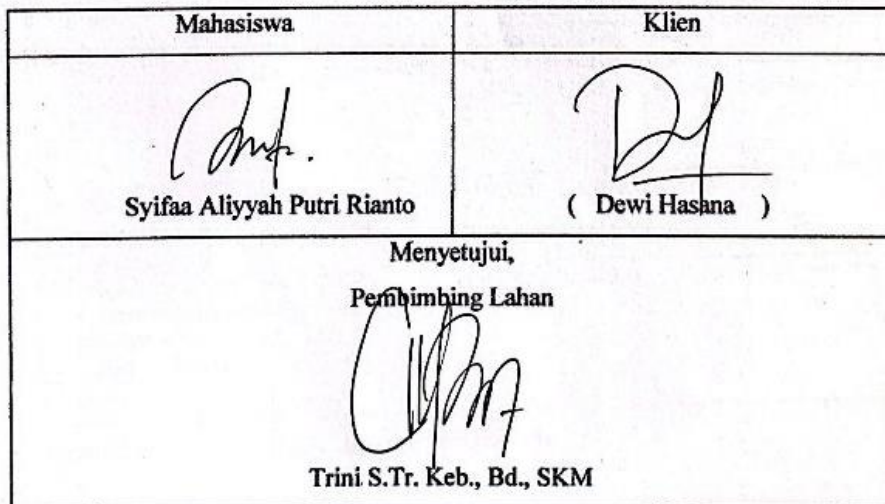 Mahasiswa
Klien
Syifaa Aliyyah Putri Rianto
( Dewi Hasana )
Menyetujui,
Pembimbing Lahan
Trini S.Tr. Keb., Bd., SKM